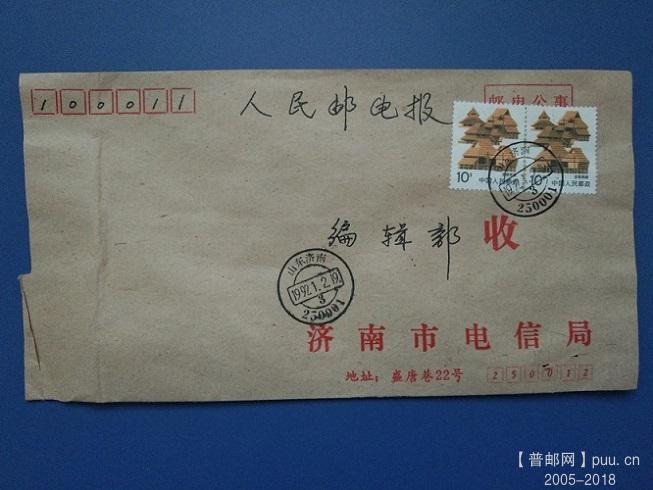 100011
人民邮电报
邮电公事
10分
中国人民邮政
10分
中国人民邮政
山东济南
3
250001
编辑部 收
山东济南
1992.1.2.19
3
250001
济南市电信局
地址：盛唐巷22号 250012
【普邮网】puu.cn
2005-2018